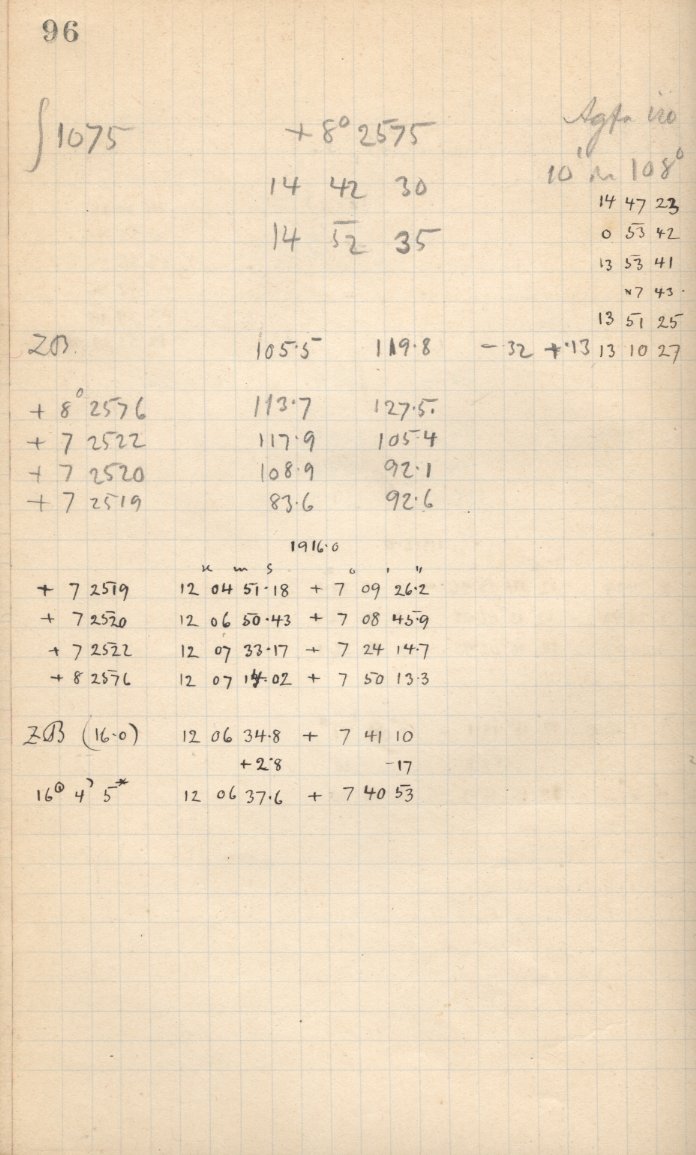 96
∫1075 +8° 2575 Agfa iso
14 42 30 10" in 108°
14 52 35 14 47 23
0 53 42
13 53 41
×7 43
13 51 25
ZB. 105.5 119.8 -32 +.13 13 10 27
+ 8° 2576 113.7 127.5
+ 7 2522 117.9 105.4
+ 7 2520 108.9 92.1
+ 7 2519 83.6 92.6
1916.0
h m s ° ' "
+ 7 2519 12 04 51.18 + 7 09 26.2
+ 7 2520 12 06 50.43 + 7 08 45.9
+ 7 2522 12 07 33.17 + 7 24 14.7
+ 8 2576 12 07 14.02 + 7 50 13.3
ZB (16.0) 12 06 34.8 + 7 41 10
+2.8 -17
16 4 5 12 06 37.6 + 7 40 53